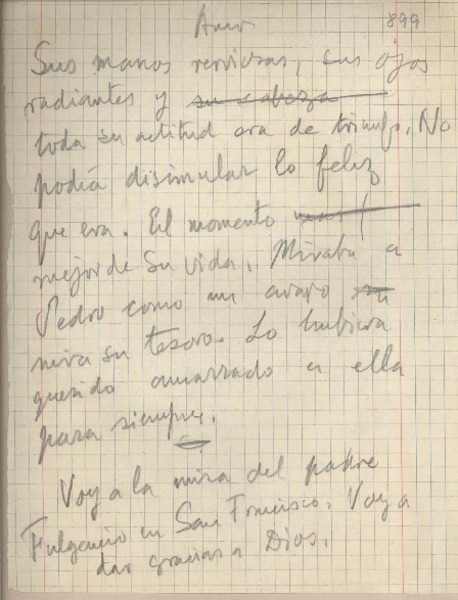 Amor 899
Sus manos nerviosas, sus ojos
radiantes y su cabeza
toda su actitud era de triunfo. No
podía disimular lo feliz
que era. El momento
mejor de su vida. Miraba a
Pedro como un avaro su
mira su tesoro. Lo hubiera
querido amarrado a ella
para siempre.
Voy a la misa del padre
Fulgencio en San Francisco. Voy a
dar gracias a Dios.